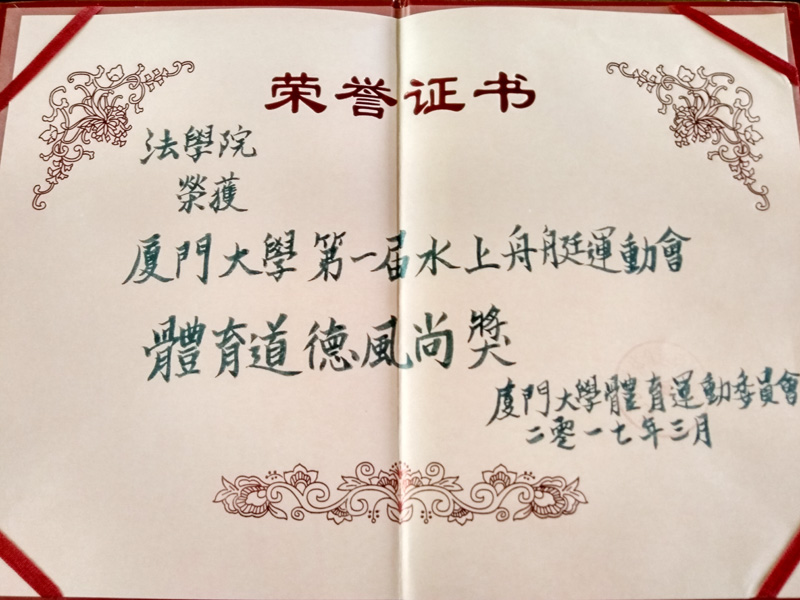 荣誉证书
法學院
榮獲
厦門大學第一届水上舟艇運動會
體育道德風尚獎
厦門大學體育運動委員會
二零一七年三月